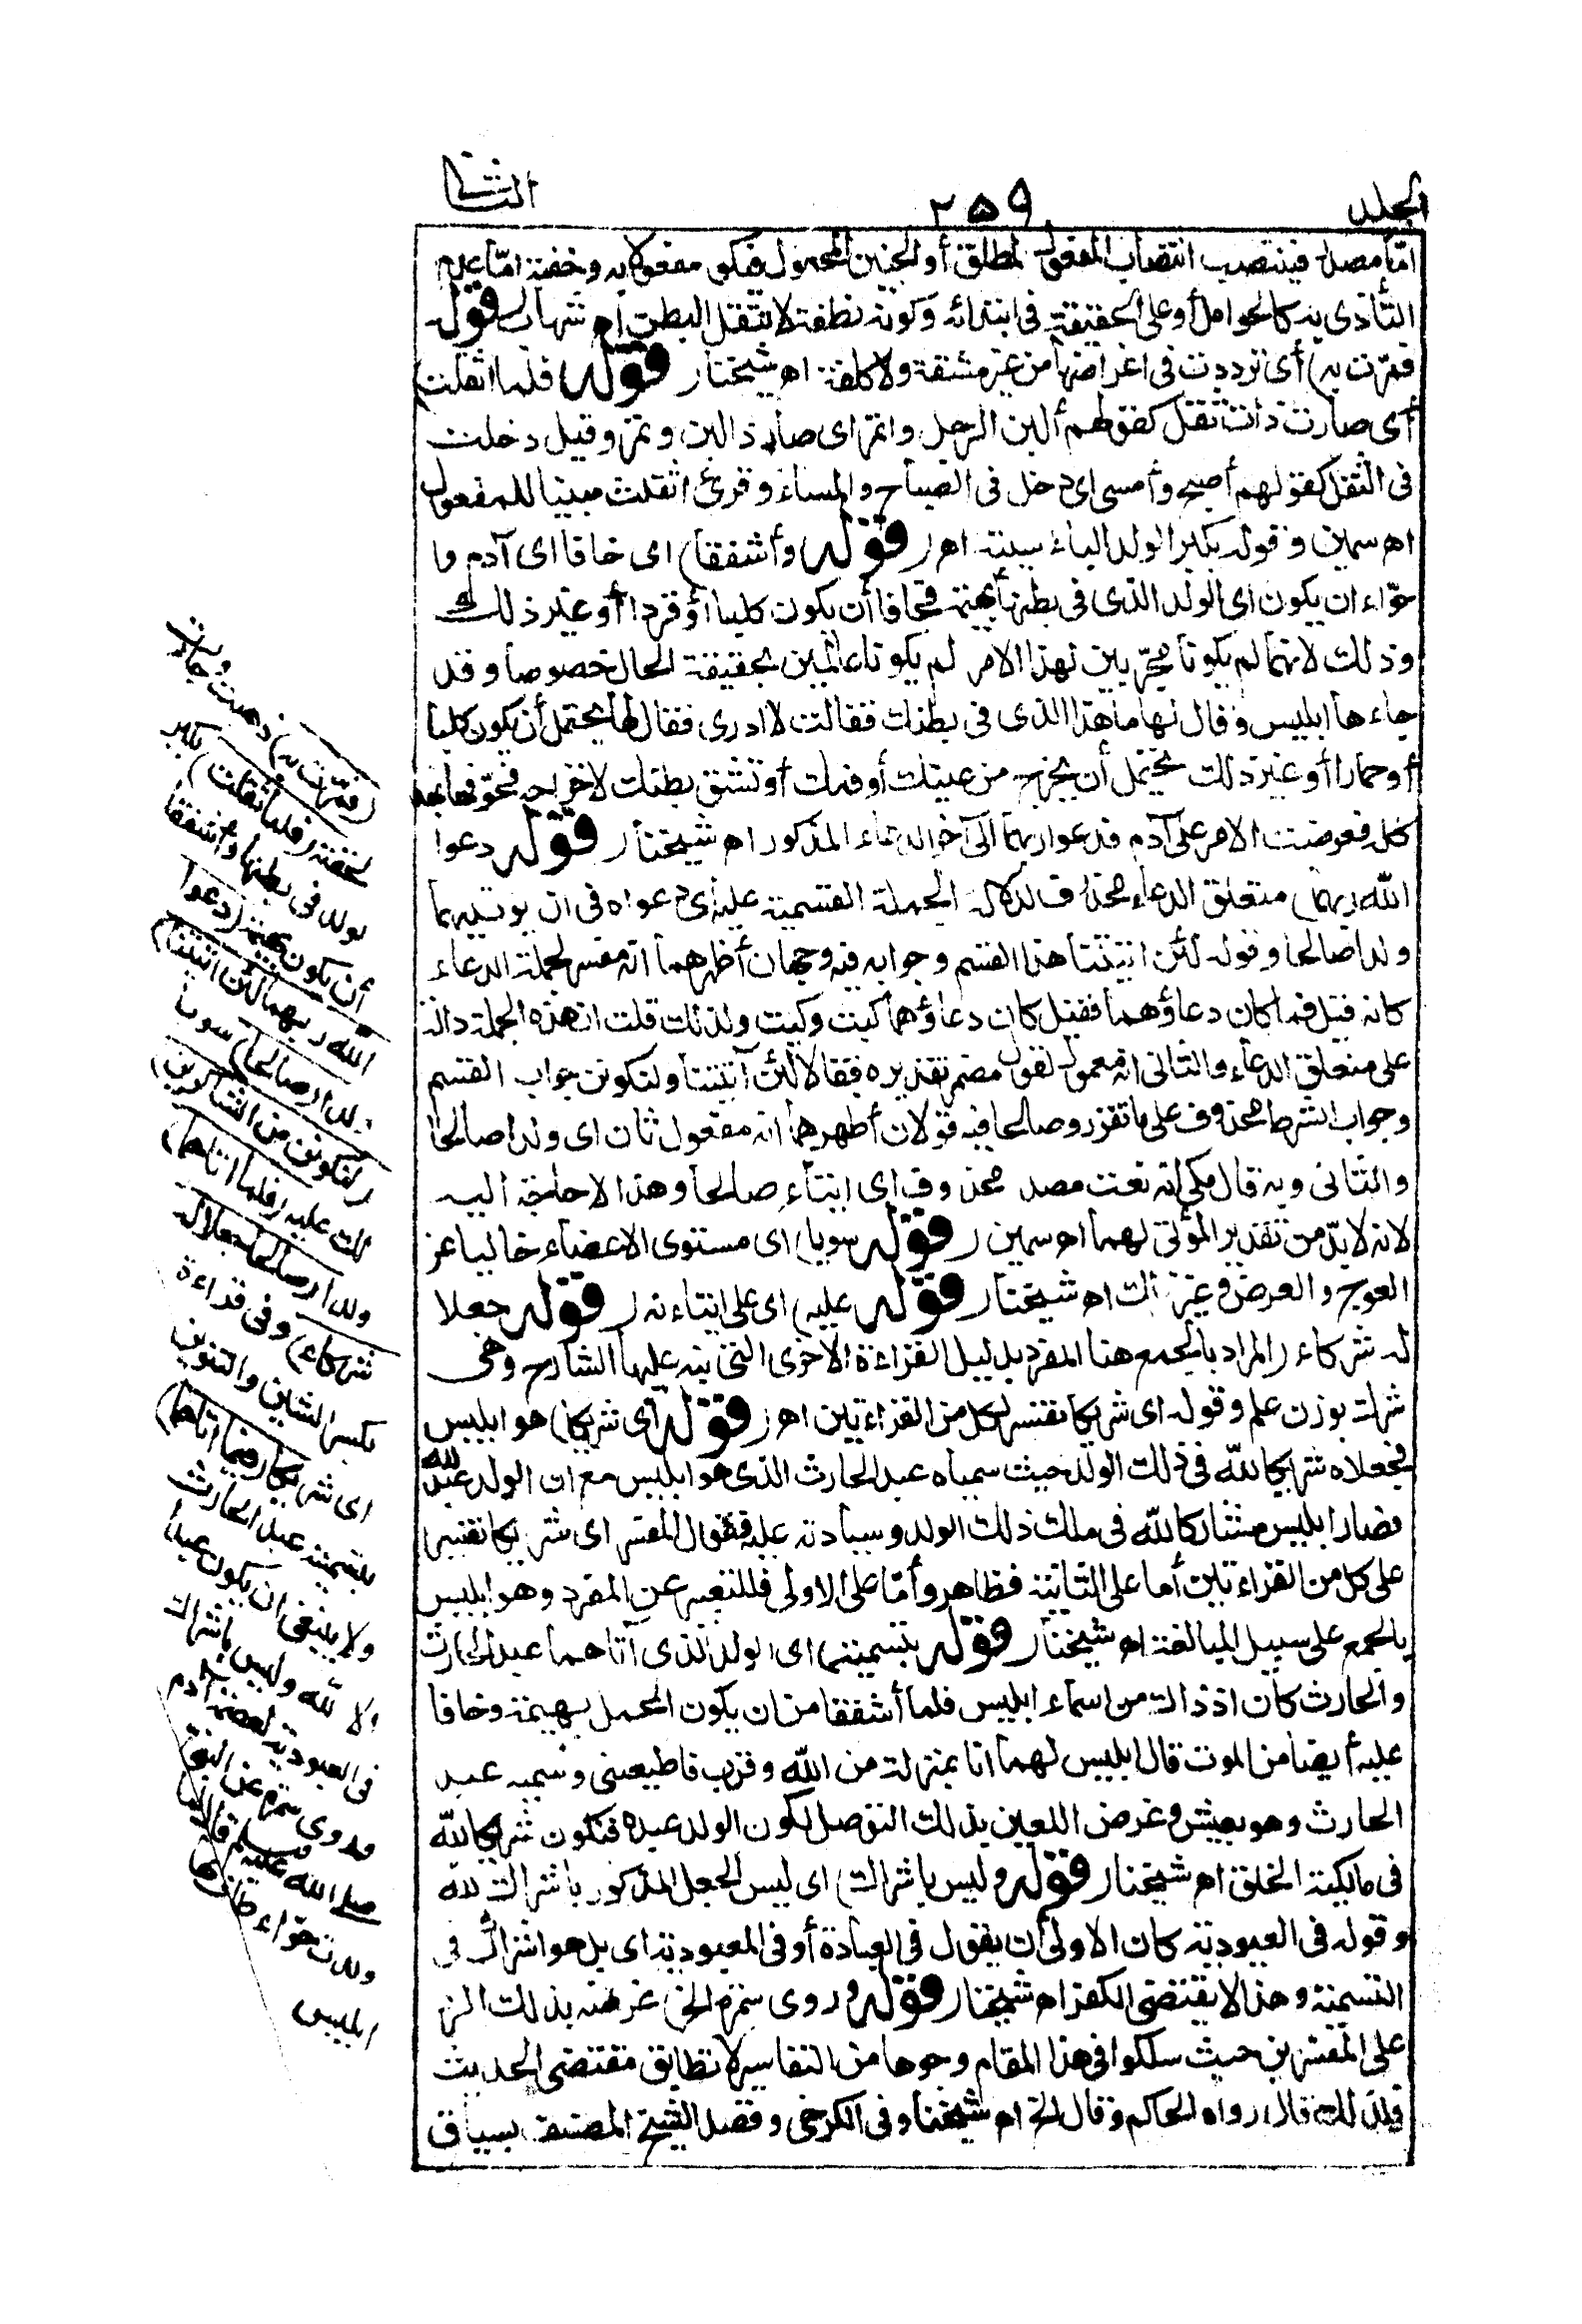 الجلد
٢٥٩
الثانى
امّا مصدر فينتصب انتصاب المفعول المطلق أو الجنين المحمول فيكون مفعولا به وخفته امّا عدم
التأذى به كالحوامل أو على الحقيقة فى ابتدائه وكونه نطفة لا تثقل البطن اه شهاب (قوله
فمرّت به) أى ترددت فى اغراضها من غير مشقة ولا كلفة اه شيخنا (قوله فلما اثقلت)
أى صارت ذات ثقل كقولهم ألبن الرجل واتمر اى صار ذا لبن وتمر وقيل دخلت
فى الثقل كقولهم أصبح وأمسى اى دخل فى الصباح والمساء وقرئ اثقلت مبنيا للمفعول
اه سمين وقوله بكبر الولد الباء سببية اه (قوله وأشفقا) اى خافا اى آدم و
حوّاء ان يكون اى الولد الذى فى بطنها بهيمة فخافا أن يكون كلبا أو قردا أو غير ذلك
وذلك لانهما لم يكونا مجرّبين لهذا الامر لم يكونا عالمين بحقيقة الحال خصوصا وقد
جاءها ابليس وقال لها ما هذا الذى فى بطنك فقالت لا ادرى فقال لها يحتمل أن يكون كلبا
أو حمارا أو غير ذلك يحتمل أن يخرج من عينك أو فمك أو تشق بطنك لاخراجه فخوّفها بهذا
كله فعرضت الامر على آدم فدعوا ربهما الى آخر الدعاء المذكور اه شيخنا (قوله دعوا
الله ربهما) متعلق الدعاء محذوف لدلالة الجملة القسمية عليه أى دعواه فى ان يؤتيهما
ولدا صالحا وقوله لئن اتيتنا هذا القسم وجوابه فيه وجهان أظهرهما انه مفسر لجملة الدعاء
كانه قيل فما كان دعاؤهما فقيل كان دعاؤهما كيت وكيت ولذلك قلت ان هذه الجملة دالة
على متعلق الدعاء والثانى انه معمول لقول مضمر تقديره فقالا لئن آتيتنا ولنكونن جواب القسم
وجواب الشرط محذوف على ما تقرر وصالحا فيه قولان أظهرهما انه مفعول ثان اى ولدا صالحا
والثانى وبه قال مكى انه نعت مصدر محذوف اى ايتاء صالحا وهذا لا حاجة اليه
لانه لا بدّ من تقدير المؤتى لهما اه سمين (قوله سويا) اى مستوى الاعضاء خاليا عن
العوج والعرض وغير ذلك اه شيخنا (قوله عليه) اى على ايتاءنه (قوله جعلا
له شركاء) المراد بالجمع هنا المفرد بدليل القراءة الاخرى التى نبه عليها الشارح وهى
شرك بوزن علم وقوله اى شريكا تفسير لكل من القراءتين اه (قوله أى شريكا) هو ابليس
فجعلاه شريكا لله فى ذلك الولد حيث سمياه عبد الحارث الذى هو ابليس مع ان الولد عبد لله
فصار ابليس مشاركا لله فى ملك ذلك الولد وسيادته عليه فقول المفسر اى شريكا تفسير
على كل من القراءتين أما على الثانية فظاهر وأمّا على الاولى فللتعبير عن المفرد وهو ابليس
بالجمع على سبيل المبالغة اه شيخنا (قوله بتسميته) اى الولد الذى آتاهما عبد الحارث
والحارث كان اذ ذاك من اسماء ابليس فلما أشفقا من ان يكون الحمل بهيمة وخافا
عليه أيضا من الموت قال ابليس لهما انا بمنزلة من الله وقرب فاطيعينى وسميه عبد
الحارث وهو يعيش وغرض اللعين بذلك التوصل لكون الولد عبده فتكون شريكا لله
فى مالكية الخلق اه شيخنا (قوله وليس باشراك) اى ليس الجعل المذكور باشراك لله
وقوله فى العبودية كان الاولى أن يقول فى العبادة أو فى المعبودية اى بل هو اشراك فى
التسمية وهذا لا يقتضى الكفر اه شيخنا (قوله وروى سمرة الخ) غرضه بذلك الرد
على المفسرين حيث سلكوا فى هذا المقام وجوها من التفاسير لا تطابق مقتضى الحديث
فلذلك قال رواه الحاكم وقال الخ اه شيخنا وفى الكرخى وقصد الشيخ المصنف بسياق
(فمرّت به) ذهبت وجاءت
لخفته (فلما أثقلت) بكبر
الولد فى بطنها وأشفقا
أن يكون بهيمة (دعوا
الله ربهما لئن اتيتنا)
ولدا (صالحا) سويا
(لنكونن من الشاكرين)
لك عليه (فلما اتاهما)
ولدا (صالحا جعلا له
شركاء) وفى قراءة
بكسر الشين والتنوين
اى شريكا (فيما اتاهما)
بتسميته عبد الحارث
ولا ينبغى ان يكون عبدا
الا لله وليس باشراك
فى العبودية لعصمة آدم
وروى سمرة عن النبى
صلى الله عليه وسلم قال لما
ولدت حوّاء طاف بها
ابليس